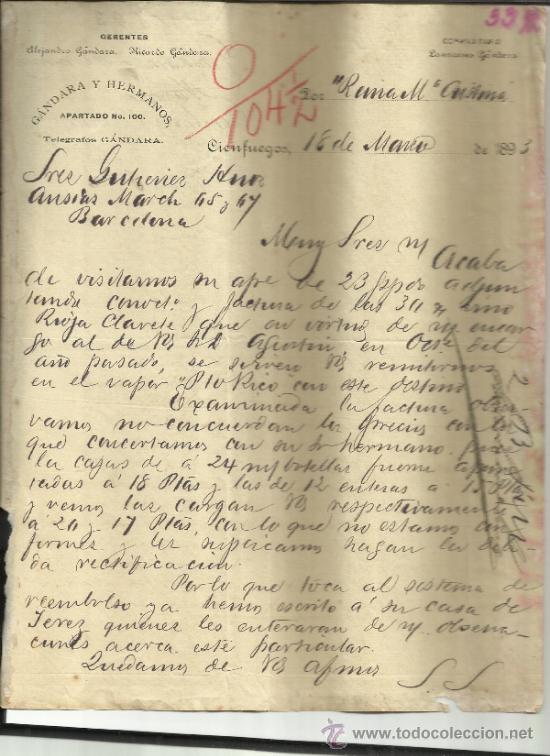 33
GERENTES
Alejandro Gándara. Ricardo Gándara.
Laureano Gándara
GÁNDARA Y HERMANOS.
APARTADO No. 100.
Telegrafos GÁNDARA.
0/104½
Por "Reina Mª Cristina
Cienfuegos, 18 de Marzo de 1893
Sres Gutierrez Hnos
Ansias March 45 y 47
Barcelona
Muy Sres n/
Acaba
de visitarnos su apre de 23 fppdo adjun
tando conocto y factura de las 30 c/ vino
Rioja Clarete que en virtud de n/ encar
go al de Vs Dn Agustin en Octe del
año pasado, se sirvieron Vs remitirnos
en el vapor Pto Rico con este destino
Examinada la factura obser
vamos no concuerdan los precios con lo
que concertamos con su Sr hermano, pues
la cajas de á 24 m/botellas fueron
á 18 Ptas y las de 12 enteras a 15 Ptas
y vemos las cargan Vs respectivamente
a 20 y 17 Ptas, con lo que no estamos con
formes y les suplicamos hagan la debi
da rectificacion.
Por lo que toca al sistema de
reembolso ya hemos escrito á su casa de
Jerez quienes les enteraran de n/ observa
ciones acerca este particular.
Quedamos de Vs afmos
S. S.
todocoleccion
www.todocoleccion.net